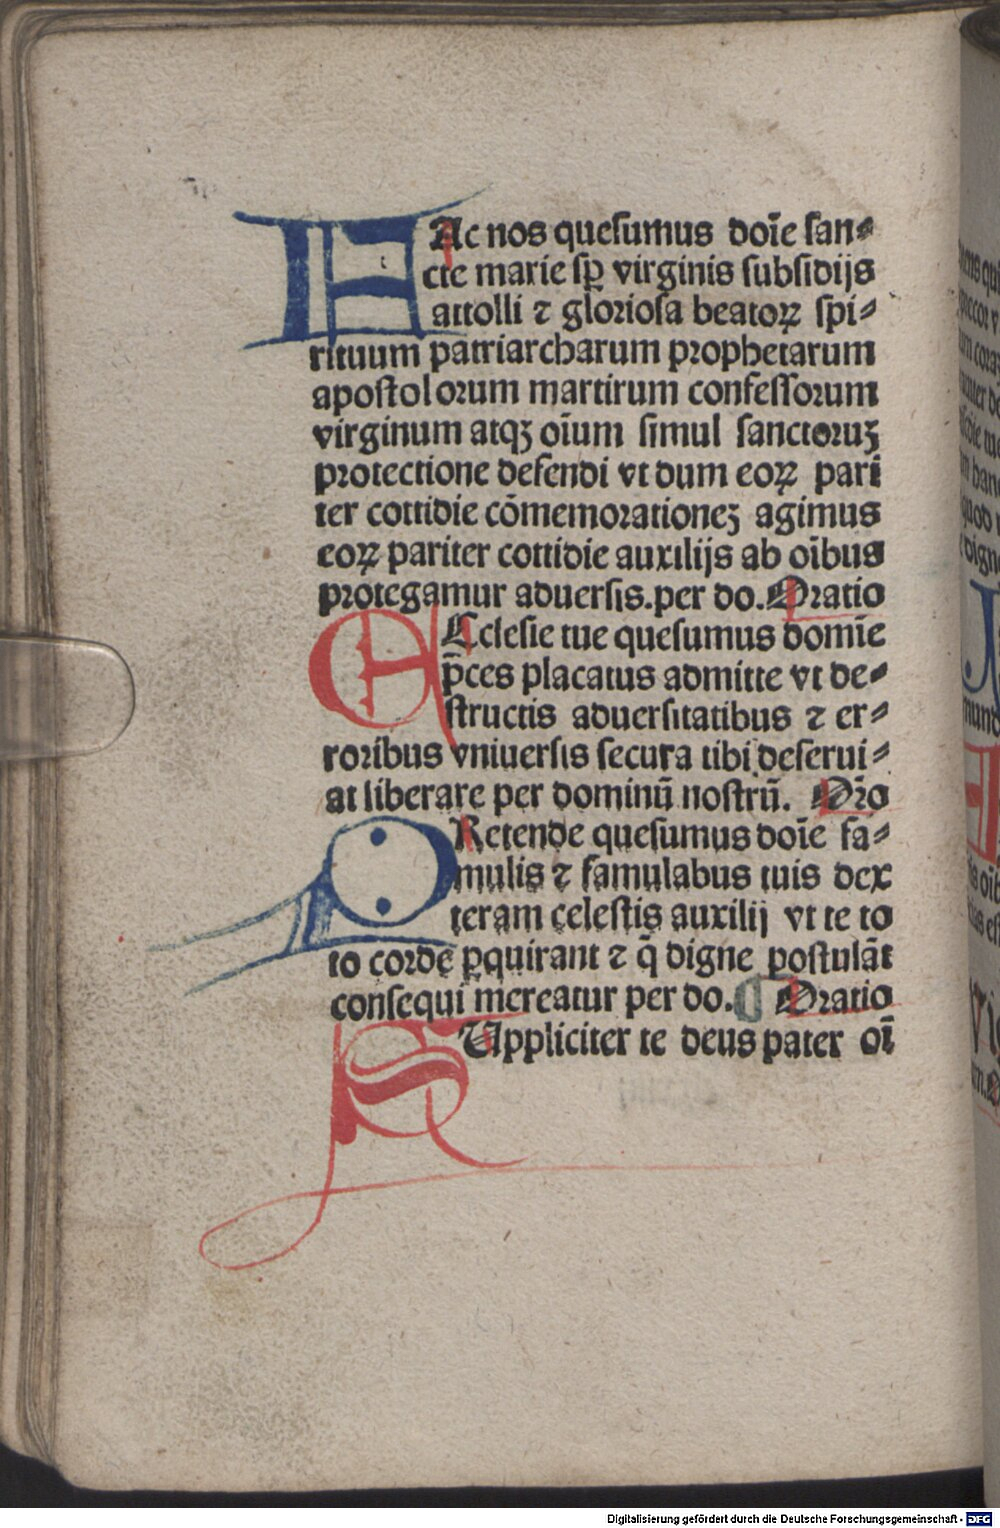 FAc nos quesumus doīe san⸗
cte marie sꝑ virginis subsidijs
attolli ⁊ gloriosa beatoꝝ spi⸗
rituum patriarcharum prophetarum
apostolorum martirum confessorum
virginum atqꝫ oīum simul sanctoruꝫ
protectione defendi vt dum eoꝝ pari
ter cottidie cōmemorationeꝫ agimus
eoꝝ pariter cottidie auxilijs ab oībus
protegamur aduersis.per do. Oratio
ECclesie tue quesumus domīe
p̄ces placatus admitte vt de⸗
structis aduersitatibus ⁊ er⸗
roribus vniuersis secura tibi deserui⸗
at liberare per dominū nostrū. Oro
PRetende quesumus doīe fa⸗
mulis ⁊ famulabus tuis dex
teram celestis auxilij vt te to
to corde ꝑquirant ⁊ q̄ digne postulāt
consequi mereatur per do. Oratio
SUppliciter te deus pater oī
Digitalisierung gefördert durch die Deutsche Forschungsgemeinschaft - DFG